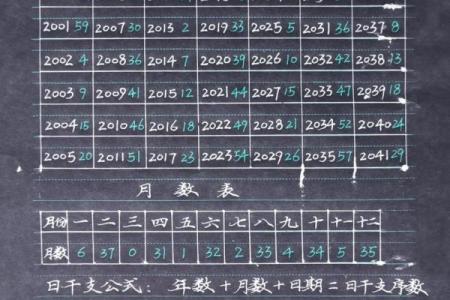 2001 59 2007 30 2013 2 2019 33 2025 5 2031 36 2037 8
2002 4 2008 36 2014 7 2020 39 2026 10 2032 42 2038 13
2003 9 2009 41 2015 12 2021 44 2027 15 2033 47 2039 18
2004 15 2010 46 2016 18 2022 49 2028 21 2034 52 2040 24
2005 20 2011 51 2017 23 2023 54 2029 26 2035 57 2041 29
月数表
月份 一 二 三 四 五 六 七 八 九 十 十一 十二
月数 6 37 0 31 1 32 2 33 4 34 5 35
日干支公式: 年数+月数+日期=日干支序数